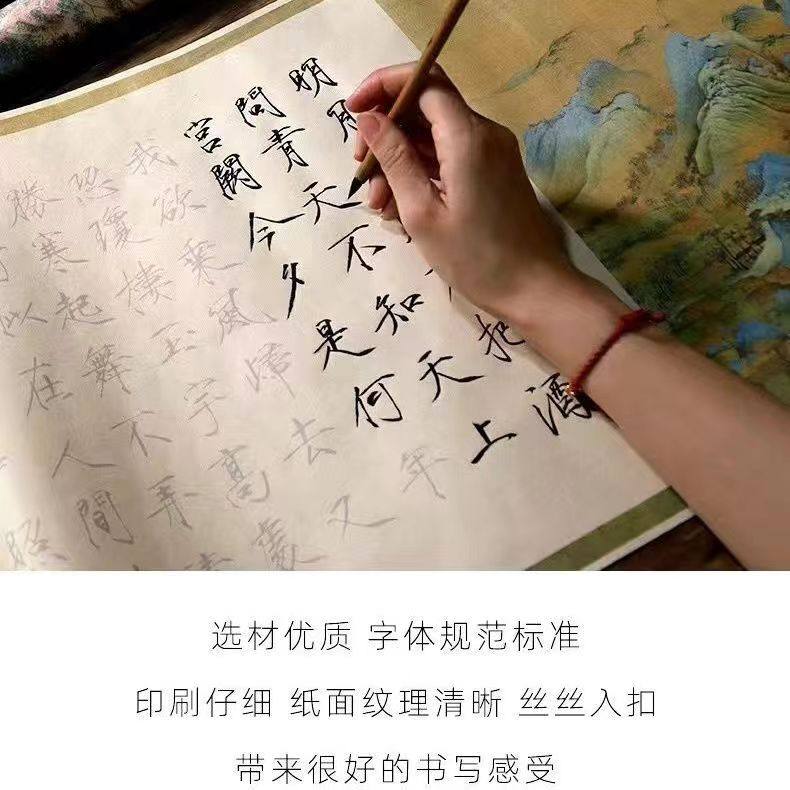 明月把酒
問青天不知天上
宮闕今夕是何年
我欲乘風歸去又
恐瓊樓玉宇高處
勝寒起舞不弄清
似在人間
照
选材优质 字体规范标准
印刷仔细 纸面纹理清晰 丝丝入扣
带来很好的书写感受